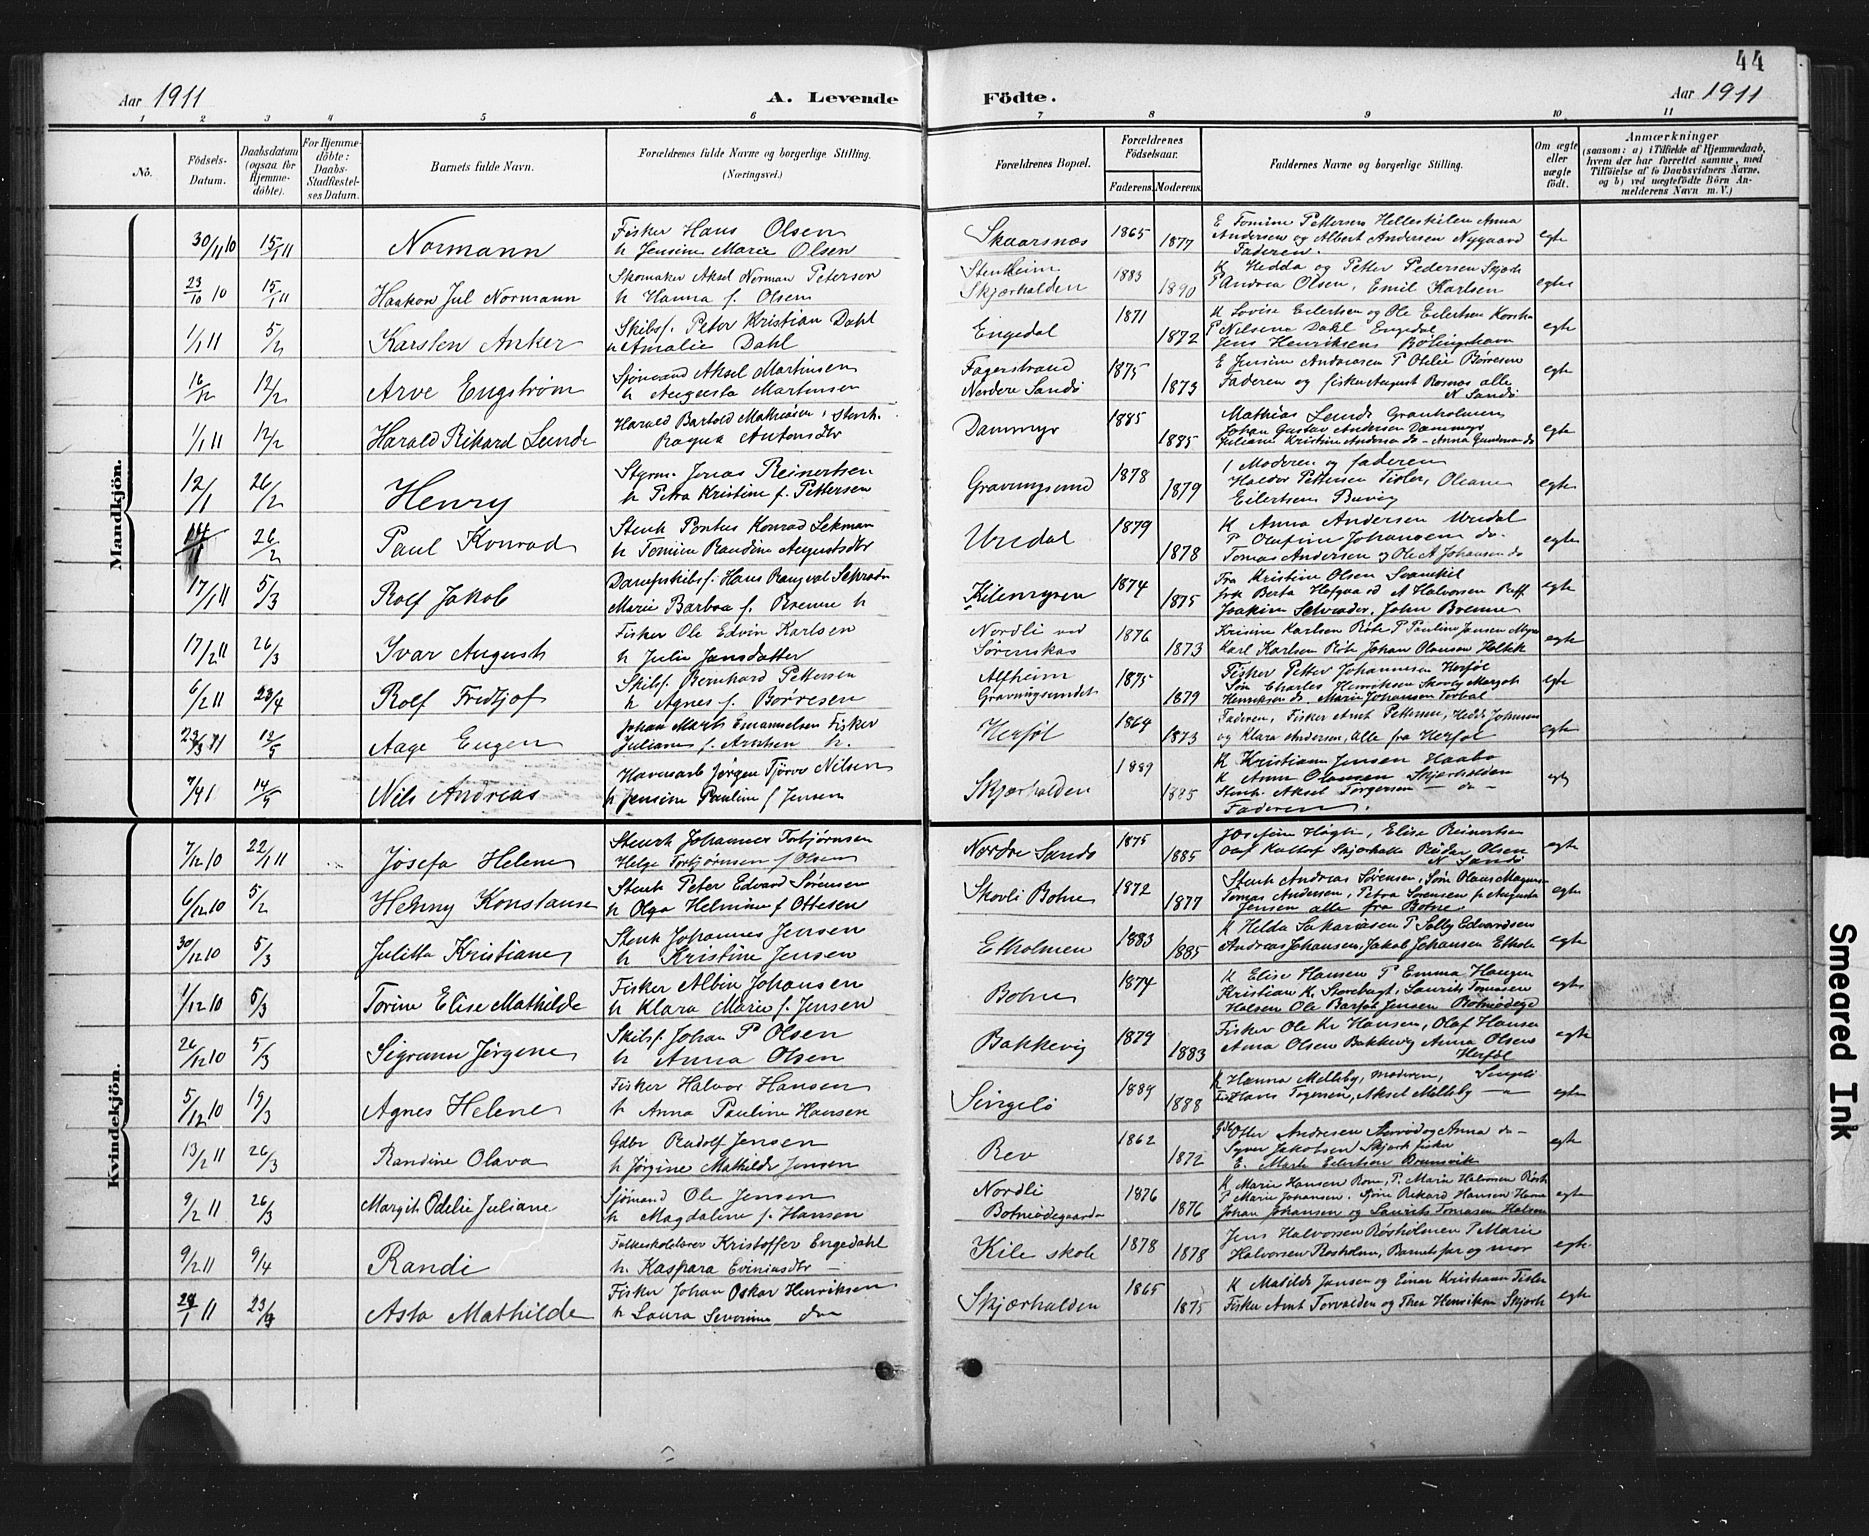 44
Aar 1911
A. Levende Födte.
Aar 1911
1 2 3 4 5 6 7 8 9 10 11
No.
Födsels-Datum.
Daabsdatum (ogsaa for Hjemme-döbte).
For Hjemme-döbte: Daabs-Stadfæstel-ses Datum.
Barnets fulde Navn.
Forældrenes fulde Navne og borgerlige Stilling. (Næringsvei.)
Forældrenes Bopæl.
Forældrenes Födselsaar.
Faderens. Moderens.
Faddernes Navne og borgerlige Stilling.
Om ægte eller uægte födt.
Anmærkninger (saasom: a) i Tilfælde af Hjemmedaab, hvem der har forrettet samme, med Tilföielse af to Daabsvidners Navne, og b) ved uægtefödte Börn An-melderens Navn m. V.)
Mandkjön.
30/11 10 15/1 11 Normann
Fisker Hans Olsen
h Jensine Marie Olsen
Skaarsnæs 1865 1877
E Tomine Pettersen Helleskilen Anna
Andersen og Albert Andersen Nygaard
Faderen.
egte
23/10 10 15/1 11 Haakon Jul Normann
Skomaker Aksel Norman Petersen
h Hanna f. Olsen
Stenheim
Skjærhalden 1883 1890
K Hedda og Petter Pedersen Skjærh
P Andrea Olsen, Emil Karlsen
egte
1/1 11 5/2 Karsten Anker
Skibsf. Peter Kristian Dahl
h Amalie Dahl
Engedal 1871 1872
K Lovise Eilertsen og Ole Eilertsen
P Nilsena Dahl Engedal
Jens Henriksen
egte
16/12 12/2 Arve Engstrøm
Sjømand Aksel Martinsen
h Augusta Martinsen
Fagerstrand
Nordre Sandø 1875 1873
E Jensine Andreasen P Otilie Børresen
Faderen og fisker August Rosnæs alle
N Sandø
egte
1/1 11 12/2 Harald Rikard Lunde
Harald Bartold Mathisen, Stenh.
Ragna Antonsdtr
Dammyr 1885 1885
Mathias Lunde Granholmen
Johan Gustav Andersen Dammyr
Juliane Kristine Andersen do - Anna Gundersen do
egte
12/1 26/2 Henry
Styrm. Jonas Reinertsen
h Petra Kristine f. Pettersen
Gravningsund 1878 1879
Moderen og faderen
Pettersen Tisler, Oleane
Eilertsen Buvig
egte
26/2 Paul Konrad
Stenh Pontus Konrad Lekman
h Tomine Randine Augustsdtr
Urdal 1879 1878
K Anna Andersen Urdal
P Olufine Johansen do.
Tomas Andersen og Ole A Johansen do
egte
17/1 11 5/3 Rolf Jakob
Dampskibsf. Hans Rangval Schrader
Marie Barbra f. Bremne h
Kilemyren 1874 1875
Fru Kristine Olsen Svanekil
frk Berta Hofgaard A Halvorsen Reff
Joakim Schrader, John Bremne
egte
17/2 11 26/3 Ivar August
Fisker Ole Edvin Karlsen
h Julie Jansdatter
Nordli ved
Sørenskas 1876 1873
Kristine Karlsen Røte P Pauline Jansen
Karl Karlsen Røte Johan Olausen Holtek
egte
6/2 11 23/4 Rolf Fredtjof
Skibsf. Bernhard Pettersen
h Agnes f. Børresen
Alfheim
Gravningsundet 1875 1879
Fisker Petter Johannesen Herføl
Søm Charles Henriksen Skovly Margot
Henriksen do, Marie Johansen
egte
12/5 Aage Eugen
Johan Marts Emanuelsen Fisker
Juliane f. Arntsen h.
Herføl 1864 1873
Faderen, Fisker Arnt Pettersen, Hedda Johnsen
og Klara Andersen, alle fra Herføl
egte
14/5 Nils Andreas
Havnearb Jørgen Tjørve Nilsen
h Jensine Pauline f Jensen
Skjærhalden 1889 1885
K Kristiane Jensen Haabo
K Anna Olausen Skjærhalden
Stenh. Aksel Torgersen - do -
Faderen.
egte
Kvindekjön.
7/12 10 22/1 11 Josefa Helene
Stenh Johannes Torbjørnsen
Helga Torbjørnsen f Olsen
Nordre Sandø 1875 1885
Josefine Høgli, Elise Reinertsen
Olaf Skjærholte Reidar Olsen
N Sandø
egte
6/12 10 5/2 Henny Konstanse
Stenh Peter Edvard Sørensen
h Olga Helmine f Ottesen
Skovli Botne 1872 1877
Stenh Andreas Sørensen, Søm Olaus Magnus
Tomas Andersen, Petra Sørensen p Augusta
Jensen alle fra Botne
egte
30/12 10 5/3 Julitta Kristiane
Stenh Johannes Jensen
h Kristine Jensen
Etholmen 1883 1885
K Helda Sakariasen P Solly Edvardsen
Andreas Johansen, Jakob Johansen Ethol
egte
1/12 10 5/3 Torine Elise Mathilde
Fisker Albin Johansen
h Klara Marie f. Jensen
Botne 1874
K Elise Hansen P Emma Haugen
Kristian K. Storebugt. Laurits Tomasen
Halsen Ole Bartof Jensen Botneødeg
egte
26/12 10 5/3 Sigrunn Jørgene
Skibsf. Johan P Olsen
h Anna Olsen
Bakkevig 1879 1883
Fisker Ole Kr Hansen, Olaf Hansen
Anna Olsen Bakkevig Anna Olsen
Herføl
egte
5/12 10 19/3 Agnes Helene
Fisker Halvor Hansen
h Anna Pauline Hansen
Singelö 1889 1888
K Hanna Mellsby, moderen, Singelö
Fis Hans Togersen, Aksel Mellsby
egte
13/2 11 26/3 Randine Olava
Gdbr Rudolf Jensen
h Jørgine Mathilde Jensen
Rev 1862 1872
Gdb Otter Andresen og Anna do -
Syver Jakobsen Skjærh Fisker
E. Marte Eilertsen Brunsvik
egte
9/2 11 26/3 Margit Odelie Juliane
Sjømand Ole Jensen
h Magdalene f. Hansen
Nordli
Botneødegaarden 1876 1876
K Marie Hansen P. Marie Halvorsen
P Marie Johansen. Rikard Hansen
Johan Johansen og Laurits Tomasen Halsen
egte
9/2 11 9/4 Randi
Folkeskolelærer Kristoffer Engedahl
h. Kaspara Eviniusdtr -
Kile skole 1878 1878
Jens Halvorsen Rørholmen P Marie
Halvorsen Rosholm, Barnets far og mor
egte
29/1 11 23/4 Asta Mathilde
Fisker Johan Oskar Henriksen
h Laura Severine do
Skjærhalden 1865 1875
K Matilde Jansen og Einar Kristiansen Tisler
Fisker Arnt Torvalden og Thea Henriksen Skjærh
egte
Smeared Ink